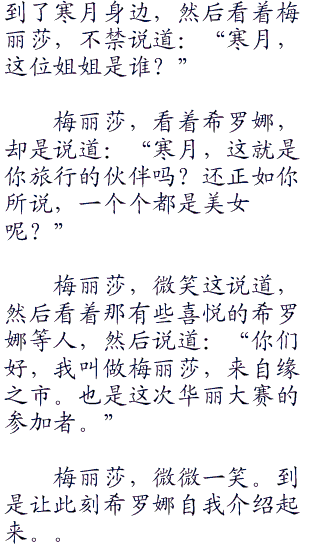 到了寒月身边，然后看着梅
丽莎，不禁说道：“寒月，
这位姐姐是谁？”
梅丽莎，看着希罗娜，
却是说道：“寒月，这就是
你旅行的伙伴吗？还正如你
所说，一个个都是美女
呢？”
梅丽莎，微笑这说道，
然后看着那有些喜悦的希罗
娜等人，然后说道：“你们
好，我叫做梅丽莎，来自缘
之市。也是这次华丽大赛的
参加者。”
梅丽莎，微微一笑。到
是让此刻希罗娜自我介绍起
来。。